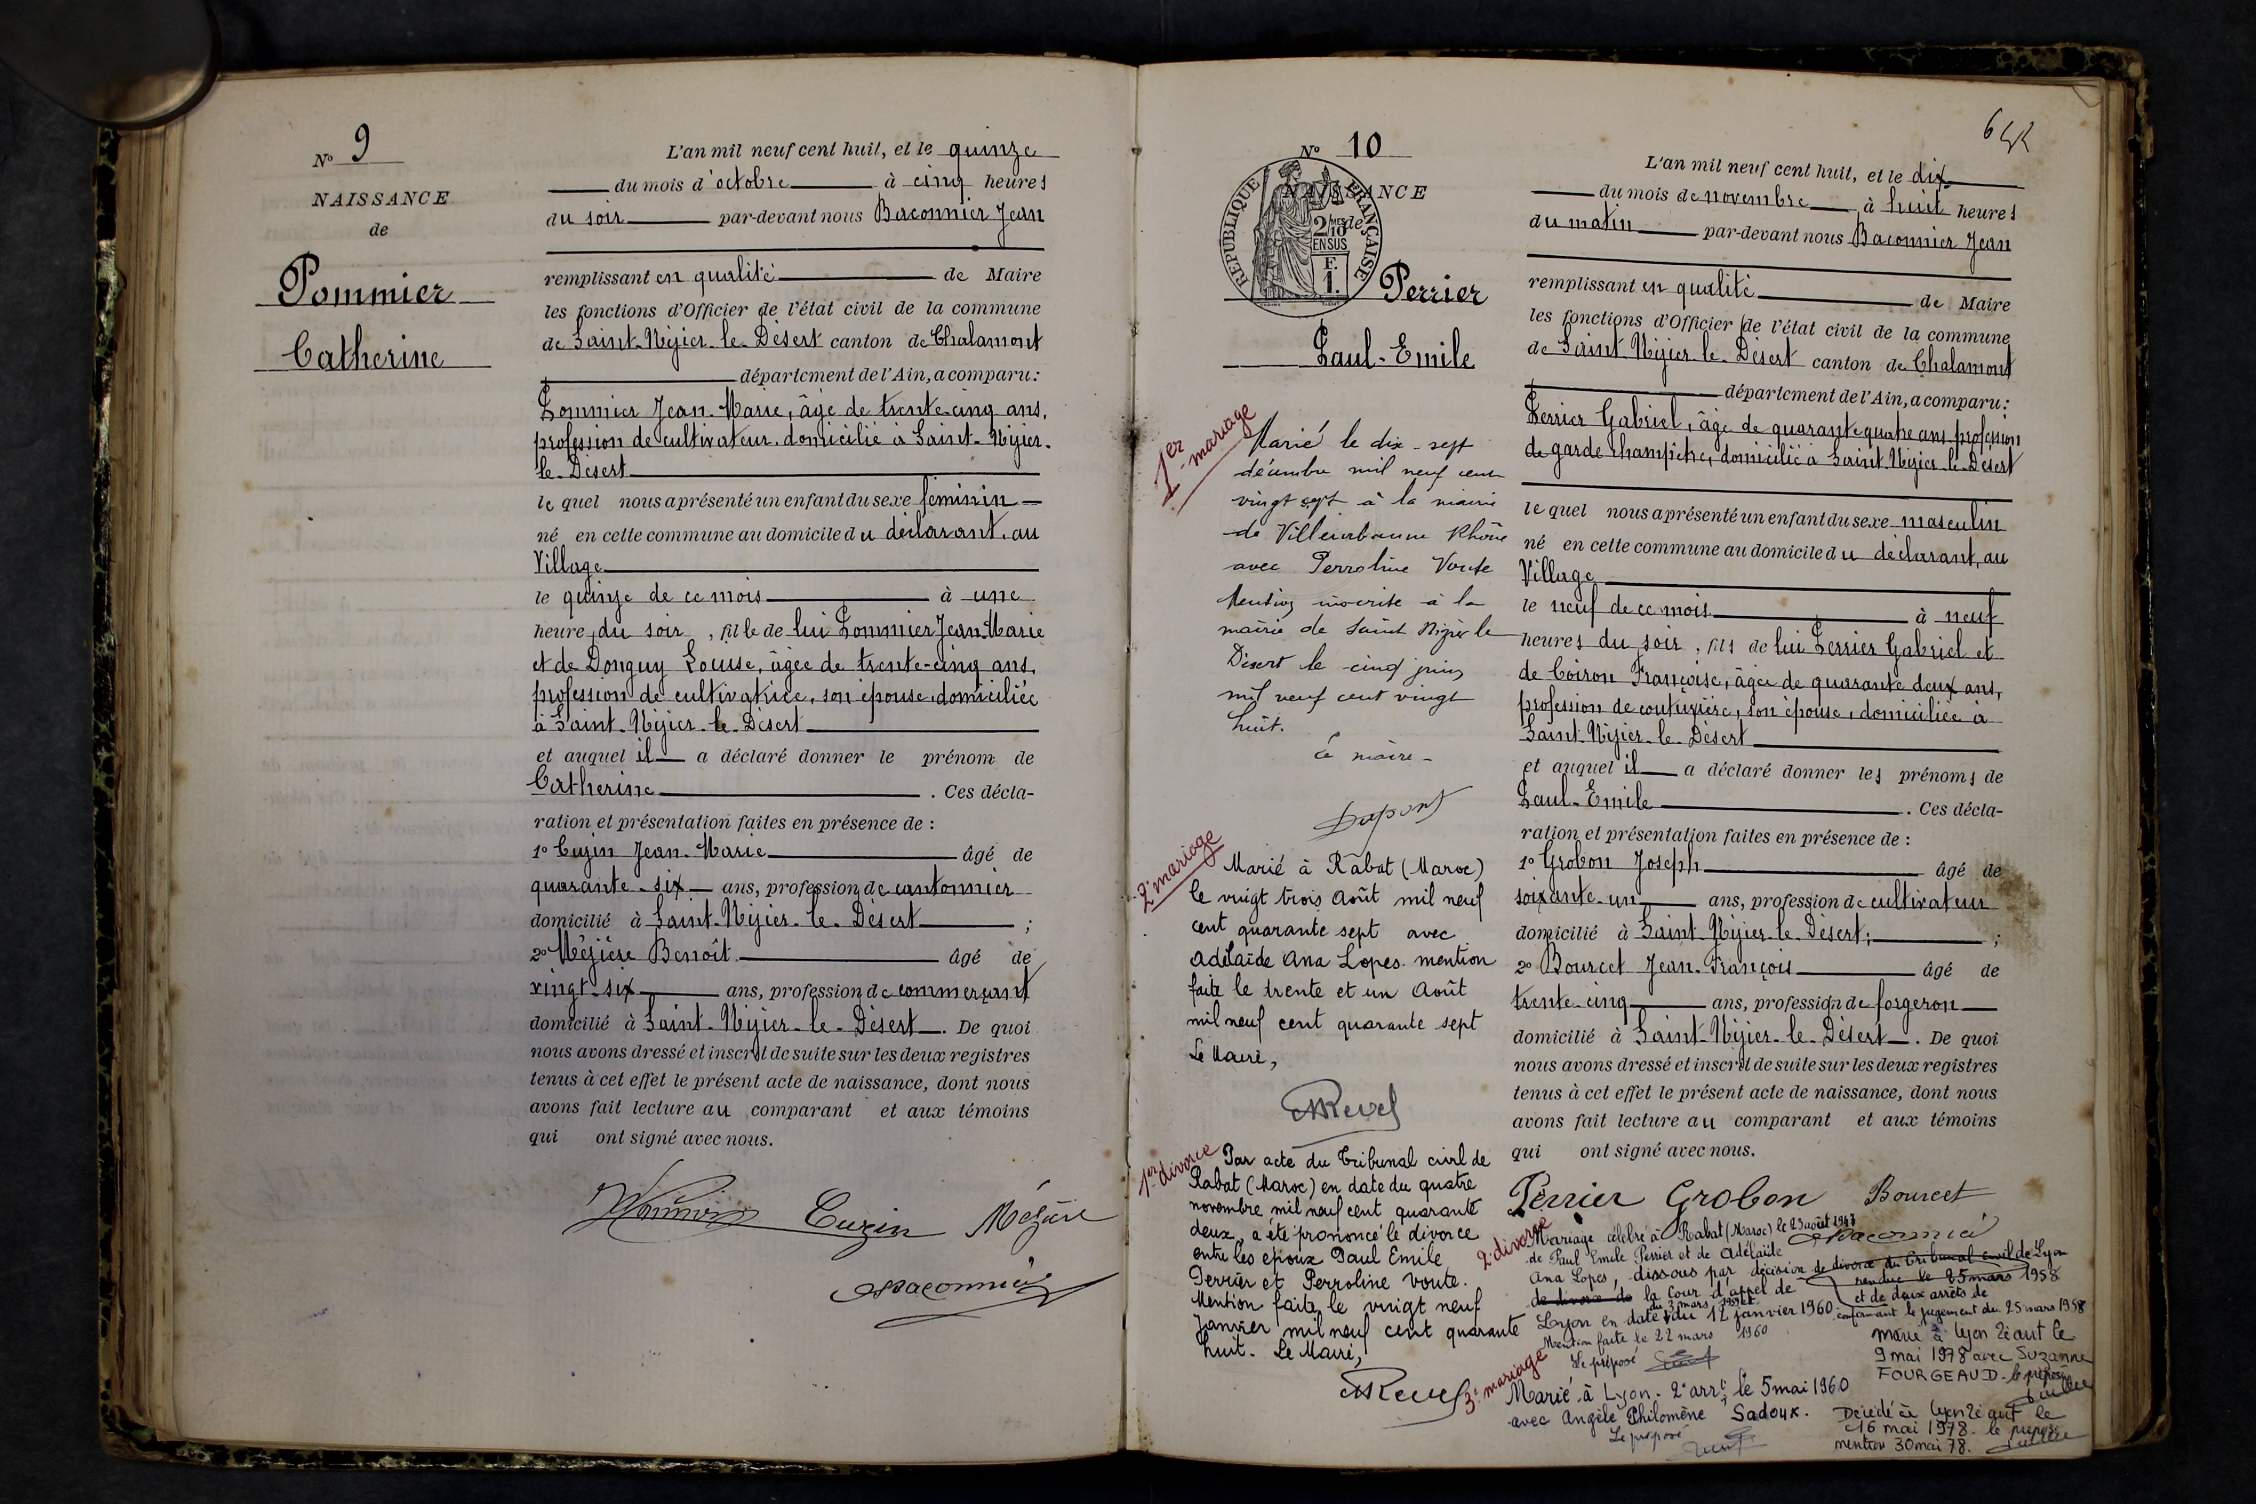 N° 9
NAISSANCE
de
Pommier
Catherine
L'an mil neuf cent huit, et le quinze
du mois d'octobre à cinq heures
du soir par-devant nous Baconnier Jean
remplissant en qualité de Maire
les fonctions d'Officier de l'état civil de la commune
de Saint-Nizier-le-Désert canton de Chalamont
département de l'Ain, a comparu:
Pommier Jean-Marie, âgé de trente-cinq ans,
profession de cultivateur, domicilié à Saint-Nizier-
le-Désert
lequel nous a présenté un enfant du sexe féminin
né en cette commune au domicile du déclarant, au
Village
le quinze de ce mois à une
heure du soir, fille de lui Pommier Jean-Marie
et de Donguy Louise, âgée de trente-cinq ans,
profession de cultivatrice, son épouse, domiciliée
à Saint-Nizier-le-Désert
et auquel il a déclaré donner le prénom de
Catherine. Ces décla-
ration et présentation faites en présence de :
1° Cuzin Jean-Marie âgé de
quarante-six ans, profession de cantonnier
domicilié à Saint-Nizier-le-Désert ;
2° Mézière Benoît âgé de
vingt-six ans, profession de commerçant
domicilié à Saint-Nizier-le-Désert. De quoi
nous avons dressé et inscrit de suite sur les deux registres
tenus à cet effet le présent acte de naissance, dont nous
avons fait lecture au comparant et aux témoins
qui ont signé avec nous.
Pommier Cuzin Mézière
Baconnier
642
N° 10
NAISSANCE
de
REPUBLIQUE FRANÇAISE
2/10 MES
EN SUS
F.
1.
Perrier
Paul-Emile
L'an mil neuf cent huit, et le dix
du mois de novembre à huit heures
du matin par-devant nous Baconnier Jean
remplissant en qualité de Maire
les fonctions d'Officier de l'état civil de la commune
de Saint-Nizier-le-Désert canton de Chalamont
département de l'Ain, a comparu:
Perrier Gabriel, âgé de quarante-quatre ans, profession
de garde champêtre, domicilié à Saint-Nizier-le-Désert
lequel nous a présenté un enfant du sexe masculin
né en cette commune au domicile du déclarant, au
Village
le neuf de ce mois à neuf
heures du soir, fils de lui Perrier Gabriel et
de Coiron Françoise, âgée de quarante-deux ans,
profession de couturière, son épouse, domiciliée à
Saint-Nizier-le-Désert
et auquel il a déclaré donner les prénoms de
Paul-Emile. Ces décla-
ration et présentation faites en présence de :
1° Grobon Joseph âgé de
soixante-un ans, profession de cultivateur
domicilié à Saint-Nizier-le-Désert; ;
2° Bourcet Jean-François âgé de
trente-cinq ans, profession de forgeron
domicilié à Saint-Nizier-le-Désert. De quoi
nous avons dressé et inscrit de suite sur les deux registres
tenus à cet effet le présent acte de naissance, dont nous
avons fait lecture au comparant et aux témoins
qui ont signé avec nous.
Perrier Grobon Bourcet
Baconnier
1er mariage
Marié le dix-sept
décembre mil neuf cent
vingt sept à la mairie
de Villeurbanne Rhône
avec Perroline Voute
Mention inscrite à la
mairie de Saint Nizier le
Désert le cinq juin
mil neuf cent vingt
huit.
Le maire
Dupont
2e mariage
Marié à Rabat (Maroc)
le vingt trois Août mil neuf
cent quarante sept avec
Adélaïde Ana Lopes. mention
faite le trente et un Août
mil neuf cent quarante sept
Le Maire,
Revel
1er divorce
Par acte du Tribunal civil de
Rabat (Maroc) en date du quatre
novembre mil neuf cent quarante
deux, a été prononcé le divorce
entre les époux Paul Emile
Perrier et Perroline Voute.
Mention faite le vingt neuf
Janvier mil neuf cent quarante
huit. Le Maire,
Revel
2e divorce
Mariage célébré à Rabat (Maroc) le 23 août 1947
de Paul Emile Perrier et de Adélaïde
Ana Lopes, dissous par décision de divorce du Tribunal civil de Lyon
rendue le 25 mars 1958
de divorce de la Cour d'appel de
et de deux arrêts de
Lyon en date du 3 mars 1959 et du 12 janvier 1960 confirmant le jugement du 25 mars 1958
Mention faite le 22 mars 1960
Le préposé
3e mariage
Marié à Lyon. 2e arrt le 5 mai 1960
avec Angèle Philomène Sadoux.
Le préposé
Marié à Lyon 2è arrt le
9 mai 1978 avec Suzanne
FOURGEAUD. le préposé
Décédé à Lyon 2è arrt le
16 mai 1978. le préposé
mention 30 mai 78.